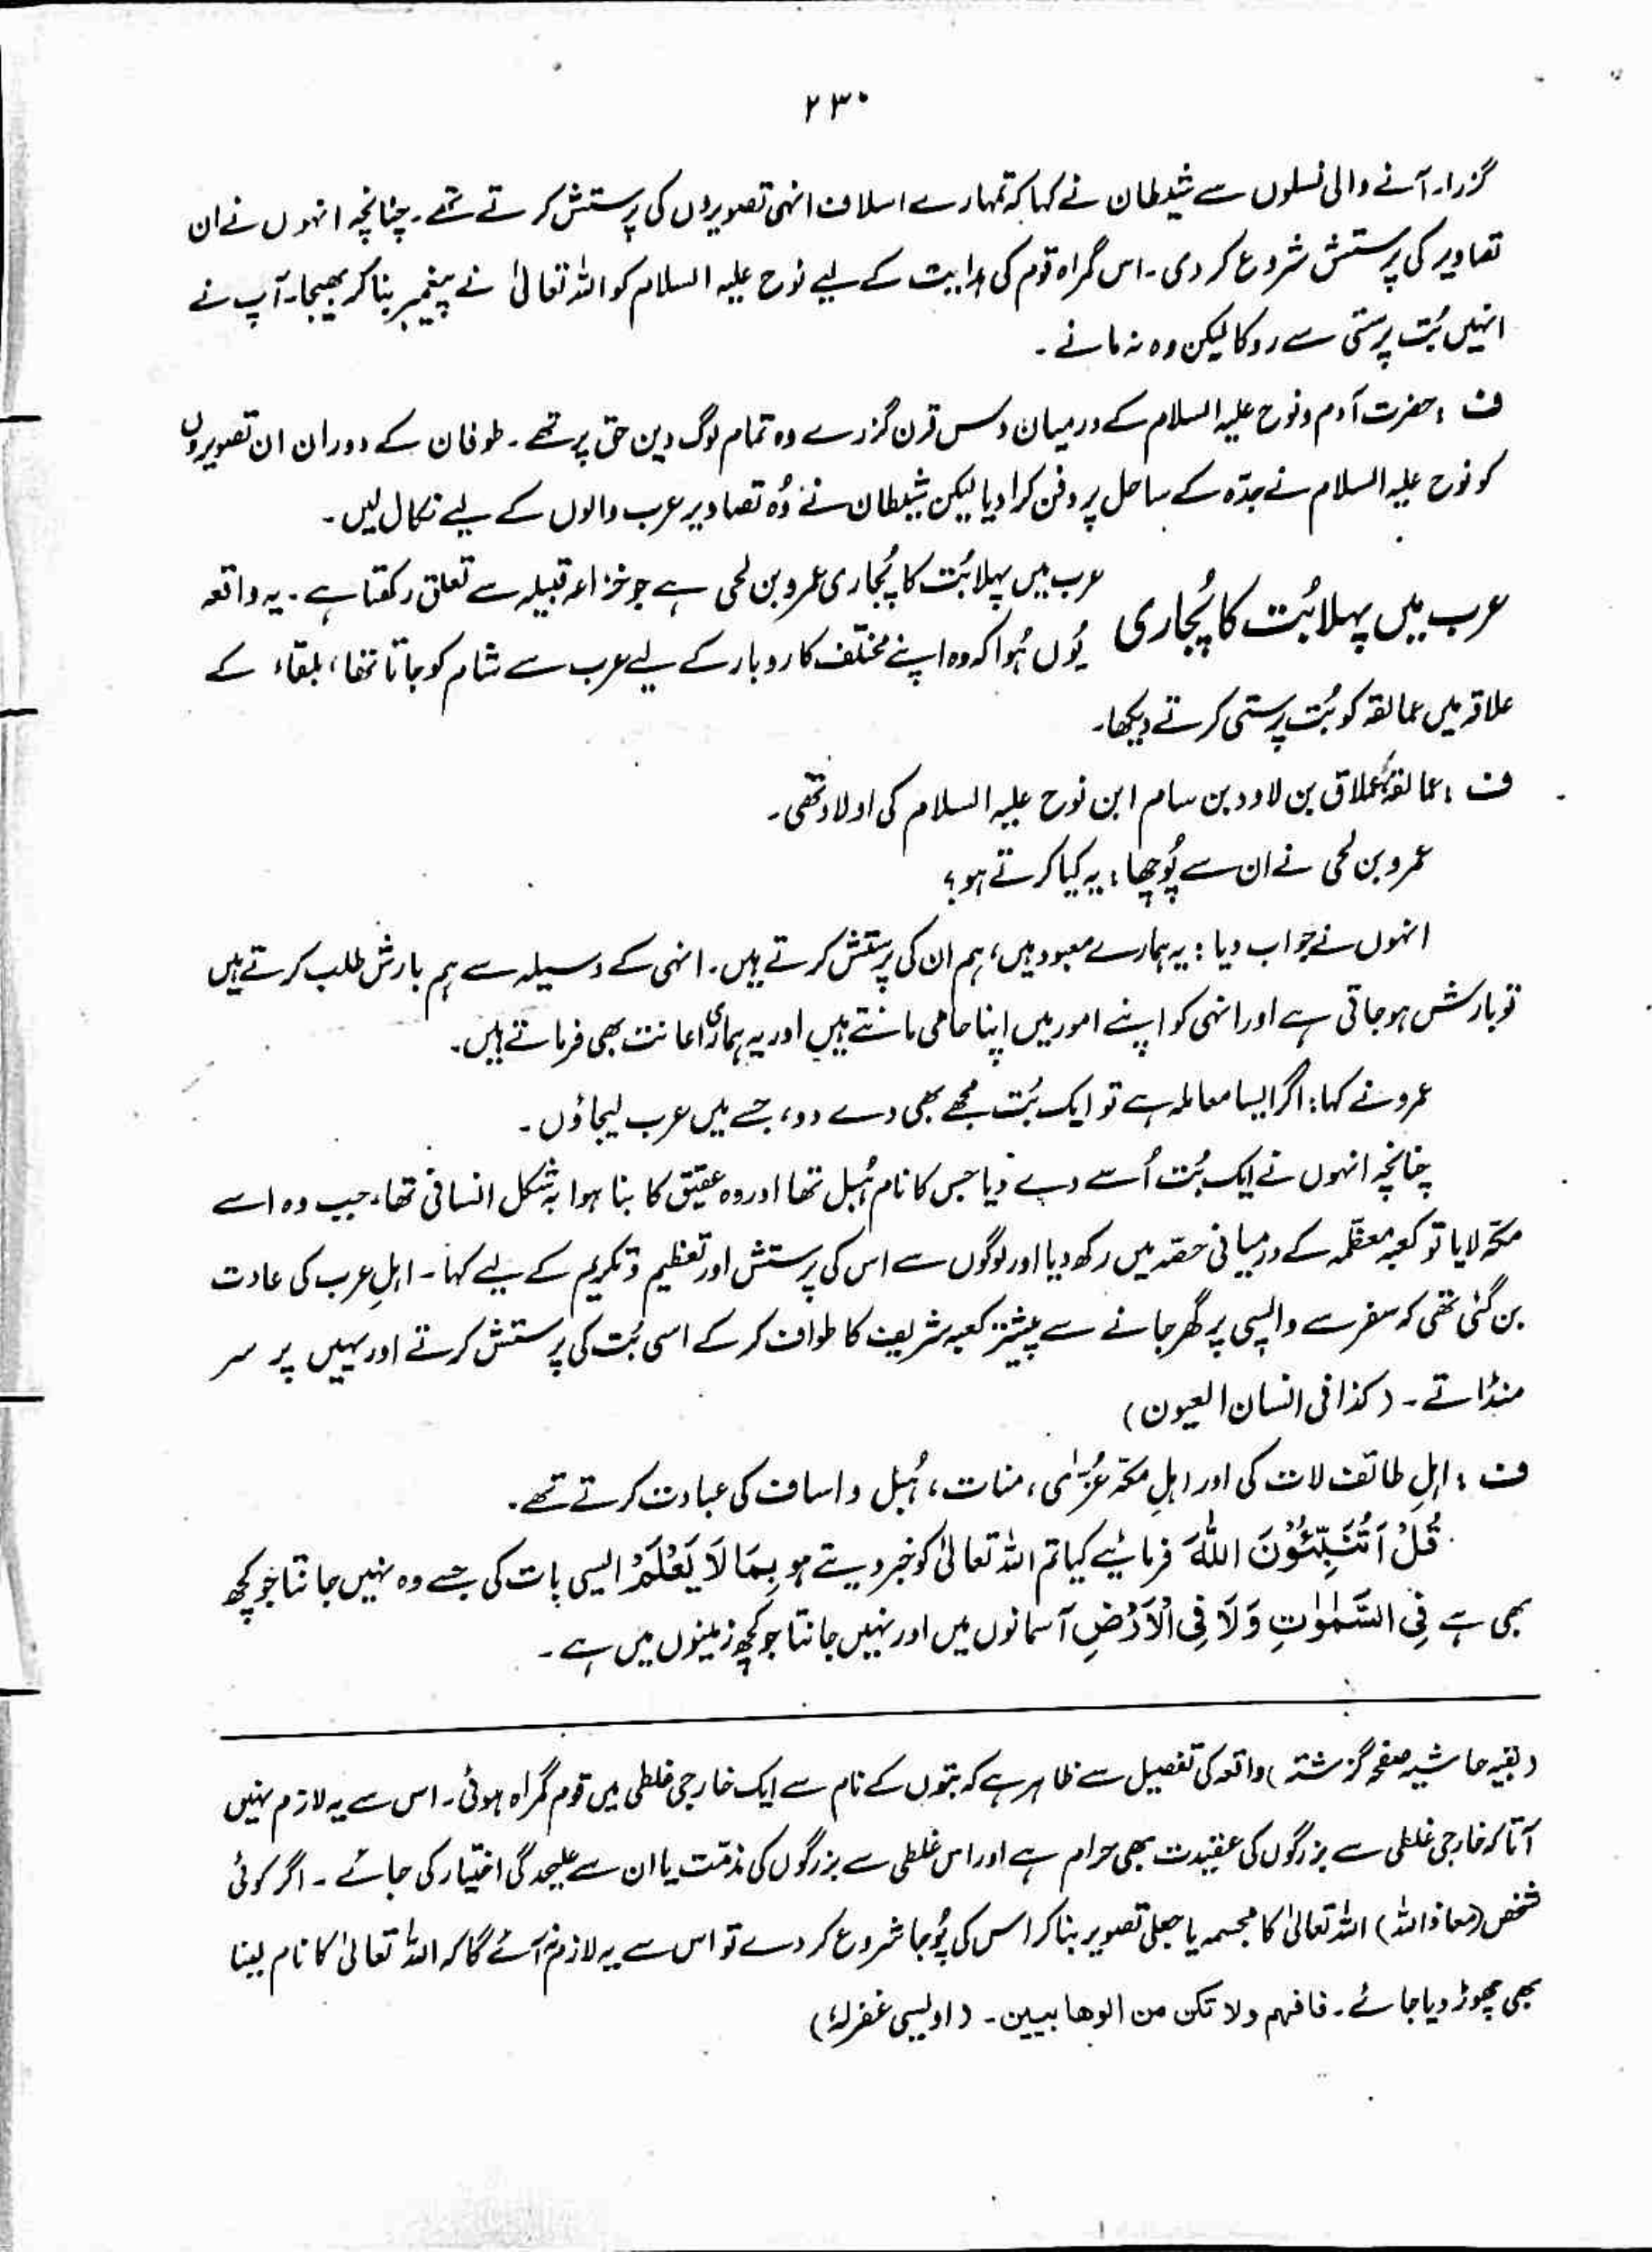 ۲۳۰
گزرا۔ آنے والی نسلوں سے شیطان نے کہا کہ تمہارے اسلاف انہی تصویروں کی پرستش کرتے تھے۔ چنانچہ انہوں نے ان
تصاویر کی پرستش شروع کر دی۔ اس گمراہ قوم کی ہدایت کے لیے نوح علیہ السلام کو اللہ تعالیٰ نے پیغمبر بنا کر بھیجا۔ آپ نے
انہیں بُت پرستی سے روکا لیکن وہ نہ مانے۔
ف : حضرت آدم و نوح علیہ السلام کے درمیان دس قرن گزرے وہ تمام لوگ دین حق پر تھے۔ طوفان کے دوران ان تصویروں
کو نوح علیہ السلام نے جدّہ کے ساحل پر دفن کرا دیا لیکن شیطان نے وُہ تصاویر عرب والوں کے لیے نکال لیں۔
عرب میں پہلا بُت کا پُجاری
عرب میں پہلا بُت کا پُجاری عمرو بن لحی ہے جو خزاعہ قبیلہ سے تعلق رکھتا ہے۔ یہ واقعہ
یُوں ہُوا کہ وہ اپنے مختلف کاروبار کے لیے عرب سے شام کو جاتا تھا، بلقاء کے
علاقہ میں عمالقہ کو بُت پرستی کرتے دیکھا۔
ف : عمالقہ عملاق بن لاود بن سام ابن نوح علیہ السلام کی اولاد تھی۔
عمرو بن لحی نے ان سے پُوچھا : یہ کیا کرتے ہو؟
انہوں نے جواب دیا : یہ ہمارے معبود ہیں، ہم ان کی پرستش کرتے ہیں۔ انہی کے وسیلہ سے ہم بارش طلب کرتے ہیں
تو بارش ہو جاتی ہے اور انہی کو اپنے امور میں اپنا حامی مانتے ہیں اور یہ ہماری اعانت بھی فرماتے ہیں۔
عمرو نے کہا : اگر ایسا معاملہ ہے تو ایک بُت مجھے بھی دے دو، جسے میں عرب لیجاؤں۔
چنانچہ انہوں نے ایک بُت اُسے دے دیا جس کا نام ہُبل تھا اور وہ عقیق کا بنا ہوا بہ شکل انسانی تھا۔ جب وہ اسے
مکّہ لایا تو کعبہ معظّمہ کے درمیانی حصّہ میں رکھ دیا اور لوگوں سے اس کی پرستش اور تعظیم و تکریم کے لیے کہا۔ اہلِ عرب کی عادت
بن گئی تھی کہ سفر سے واپسی پر گھر جانے سے پیشتر کعبہ شریف کا طواف کر کے اسی بُت کی پرستش کرتے اور یہیں پر سر
منڈاتے۔ (کذا فی انسان العیون)
ف : اہلِ طائف لات کی اور اہلِ مکّہ عُزّیٰ، منات، ہُبل و اساف کی عبادت کرتے تھے۔
قُلْ اَتُنَبِّئُوْنَ اللّٰہَ فرمائیے کیا تم اللہ تعالیٰ کو خبر دیتے ہو بِمَا لَا یَعْلَمُ ایسی بات کی جسے وہ نہیں جانتا جو کچھ
بھی ہے فِی السَّمٰوٰتِ وَلَا فِی الْاَرْضِ آسمانوں میں اور نہیں جانتا جو کچھ زمینوں میں ہے۔
(بقیہ حاشیہ صفحہ گزشتہ) واقعہ کی تفصیل سے ظاہر ہے کہ بتوں کے نام سے ایک خارجی غلطی میں قوم گمراہ ہوئی۔ اس سے یہ لازم نہیں
آتا کہ خارجی غلطی سے بزرگوں کی عقیدت بھی حرام ہے اور اس غلطی سے بزرگوں کی مذمّت یا ان سے علیحدگی اختیار کی جائے۔ اگر کوئی
شخص (معاذ اللہ) اللہ تعالیٰ کا مجسمہ یا جعلی تصویر بنا کر اس کی پُوجا شروع کر دے تو اس سے یہ لازم آئے گا کہ اللہ تعالیٰ کا نام لینا
بھی چھوڑ دیا جائے۔ فافہم ولا تکن من الوھابیین۔ (اویسی غفرلہٗ)